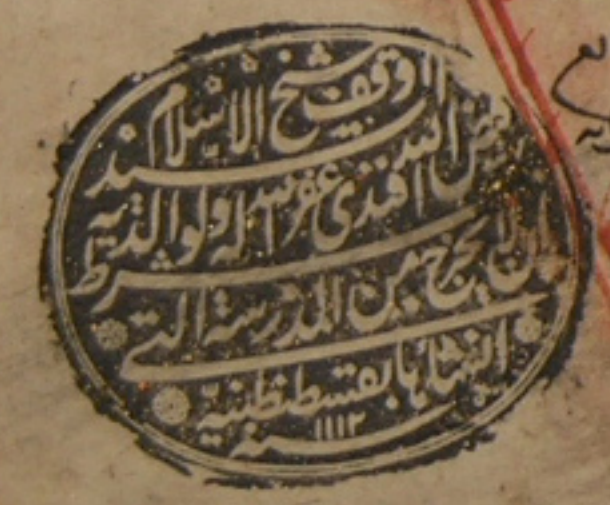 اوقف شيخ الاسلام السيد
فيض الله افندى غفر الله له ولوالديه
بشرط ان لا يخرج من المدرسة التى
انشأها بقسطنطينية
سنة ١١١٢